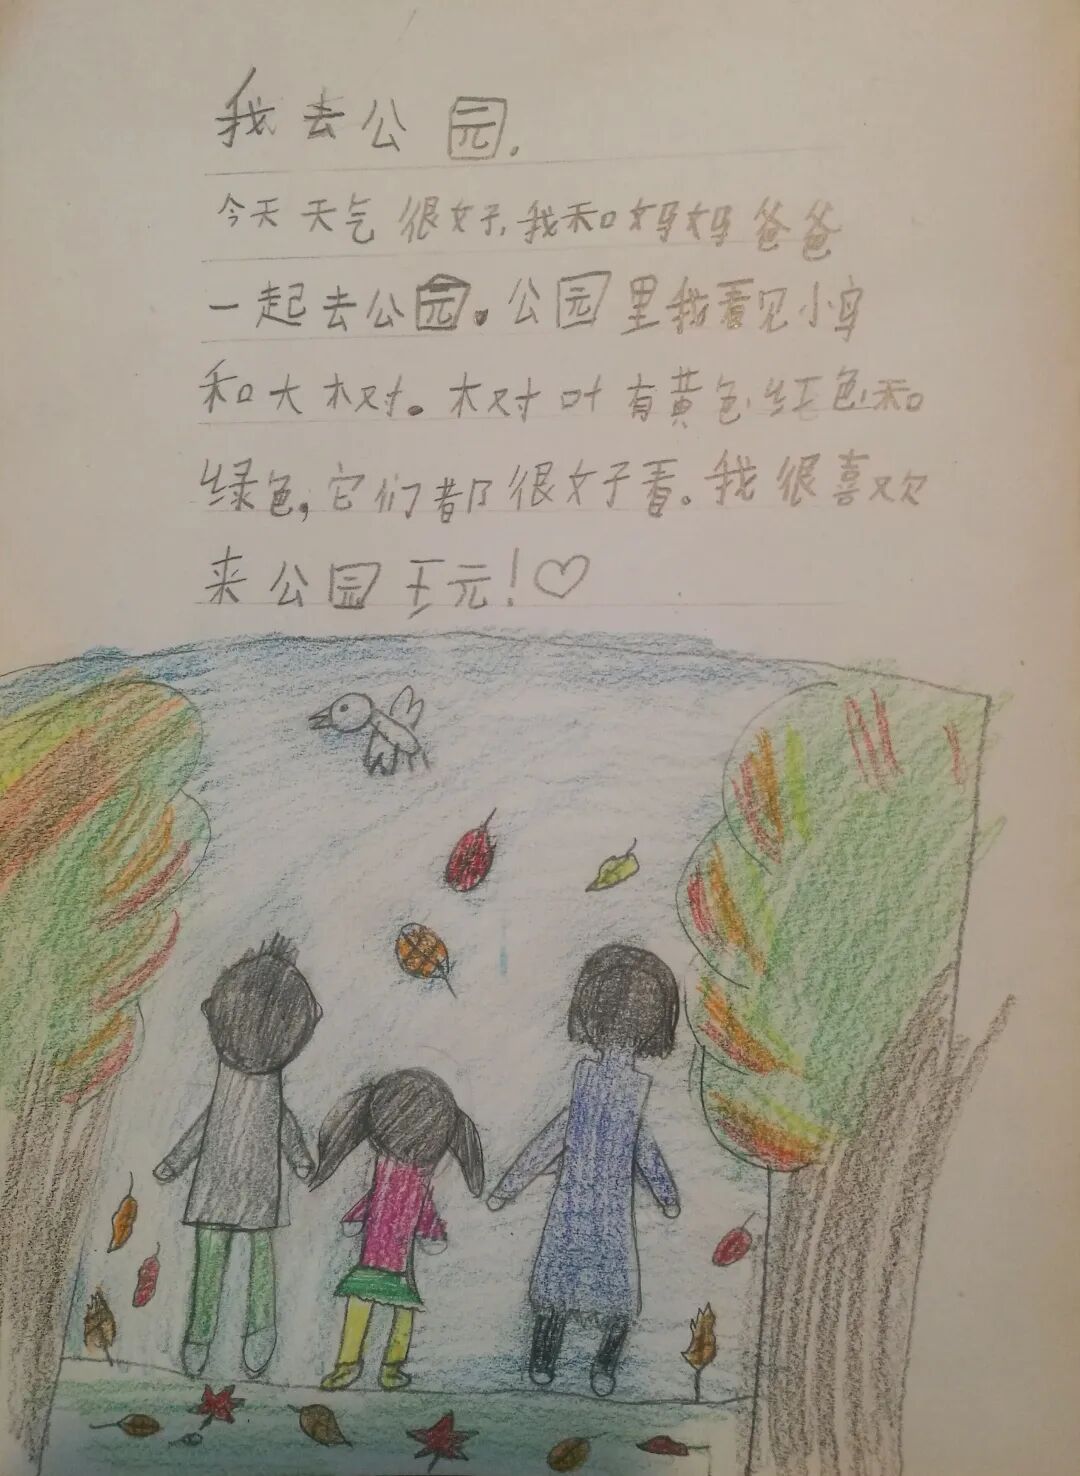 我去公园.
今天天气很好,我和妈妈爸爸
一起去公园。公园里我看见小鸟
和大树。树叶有黄色红色和
绿色,它们都很好看。我很喜欢
来公园王元!♡